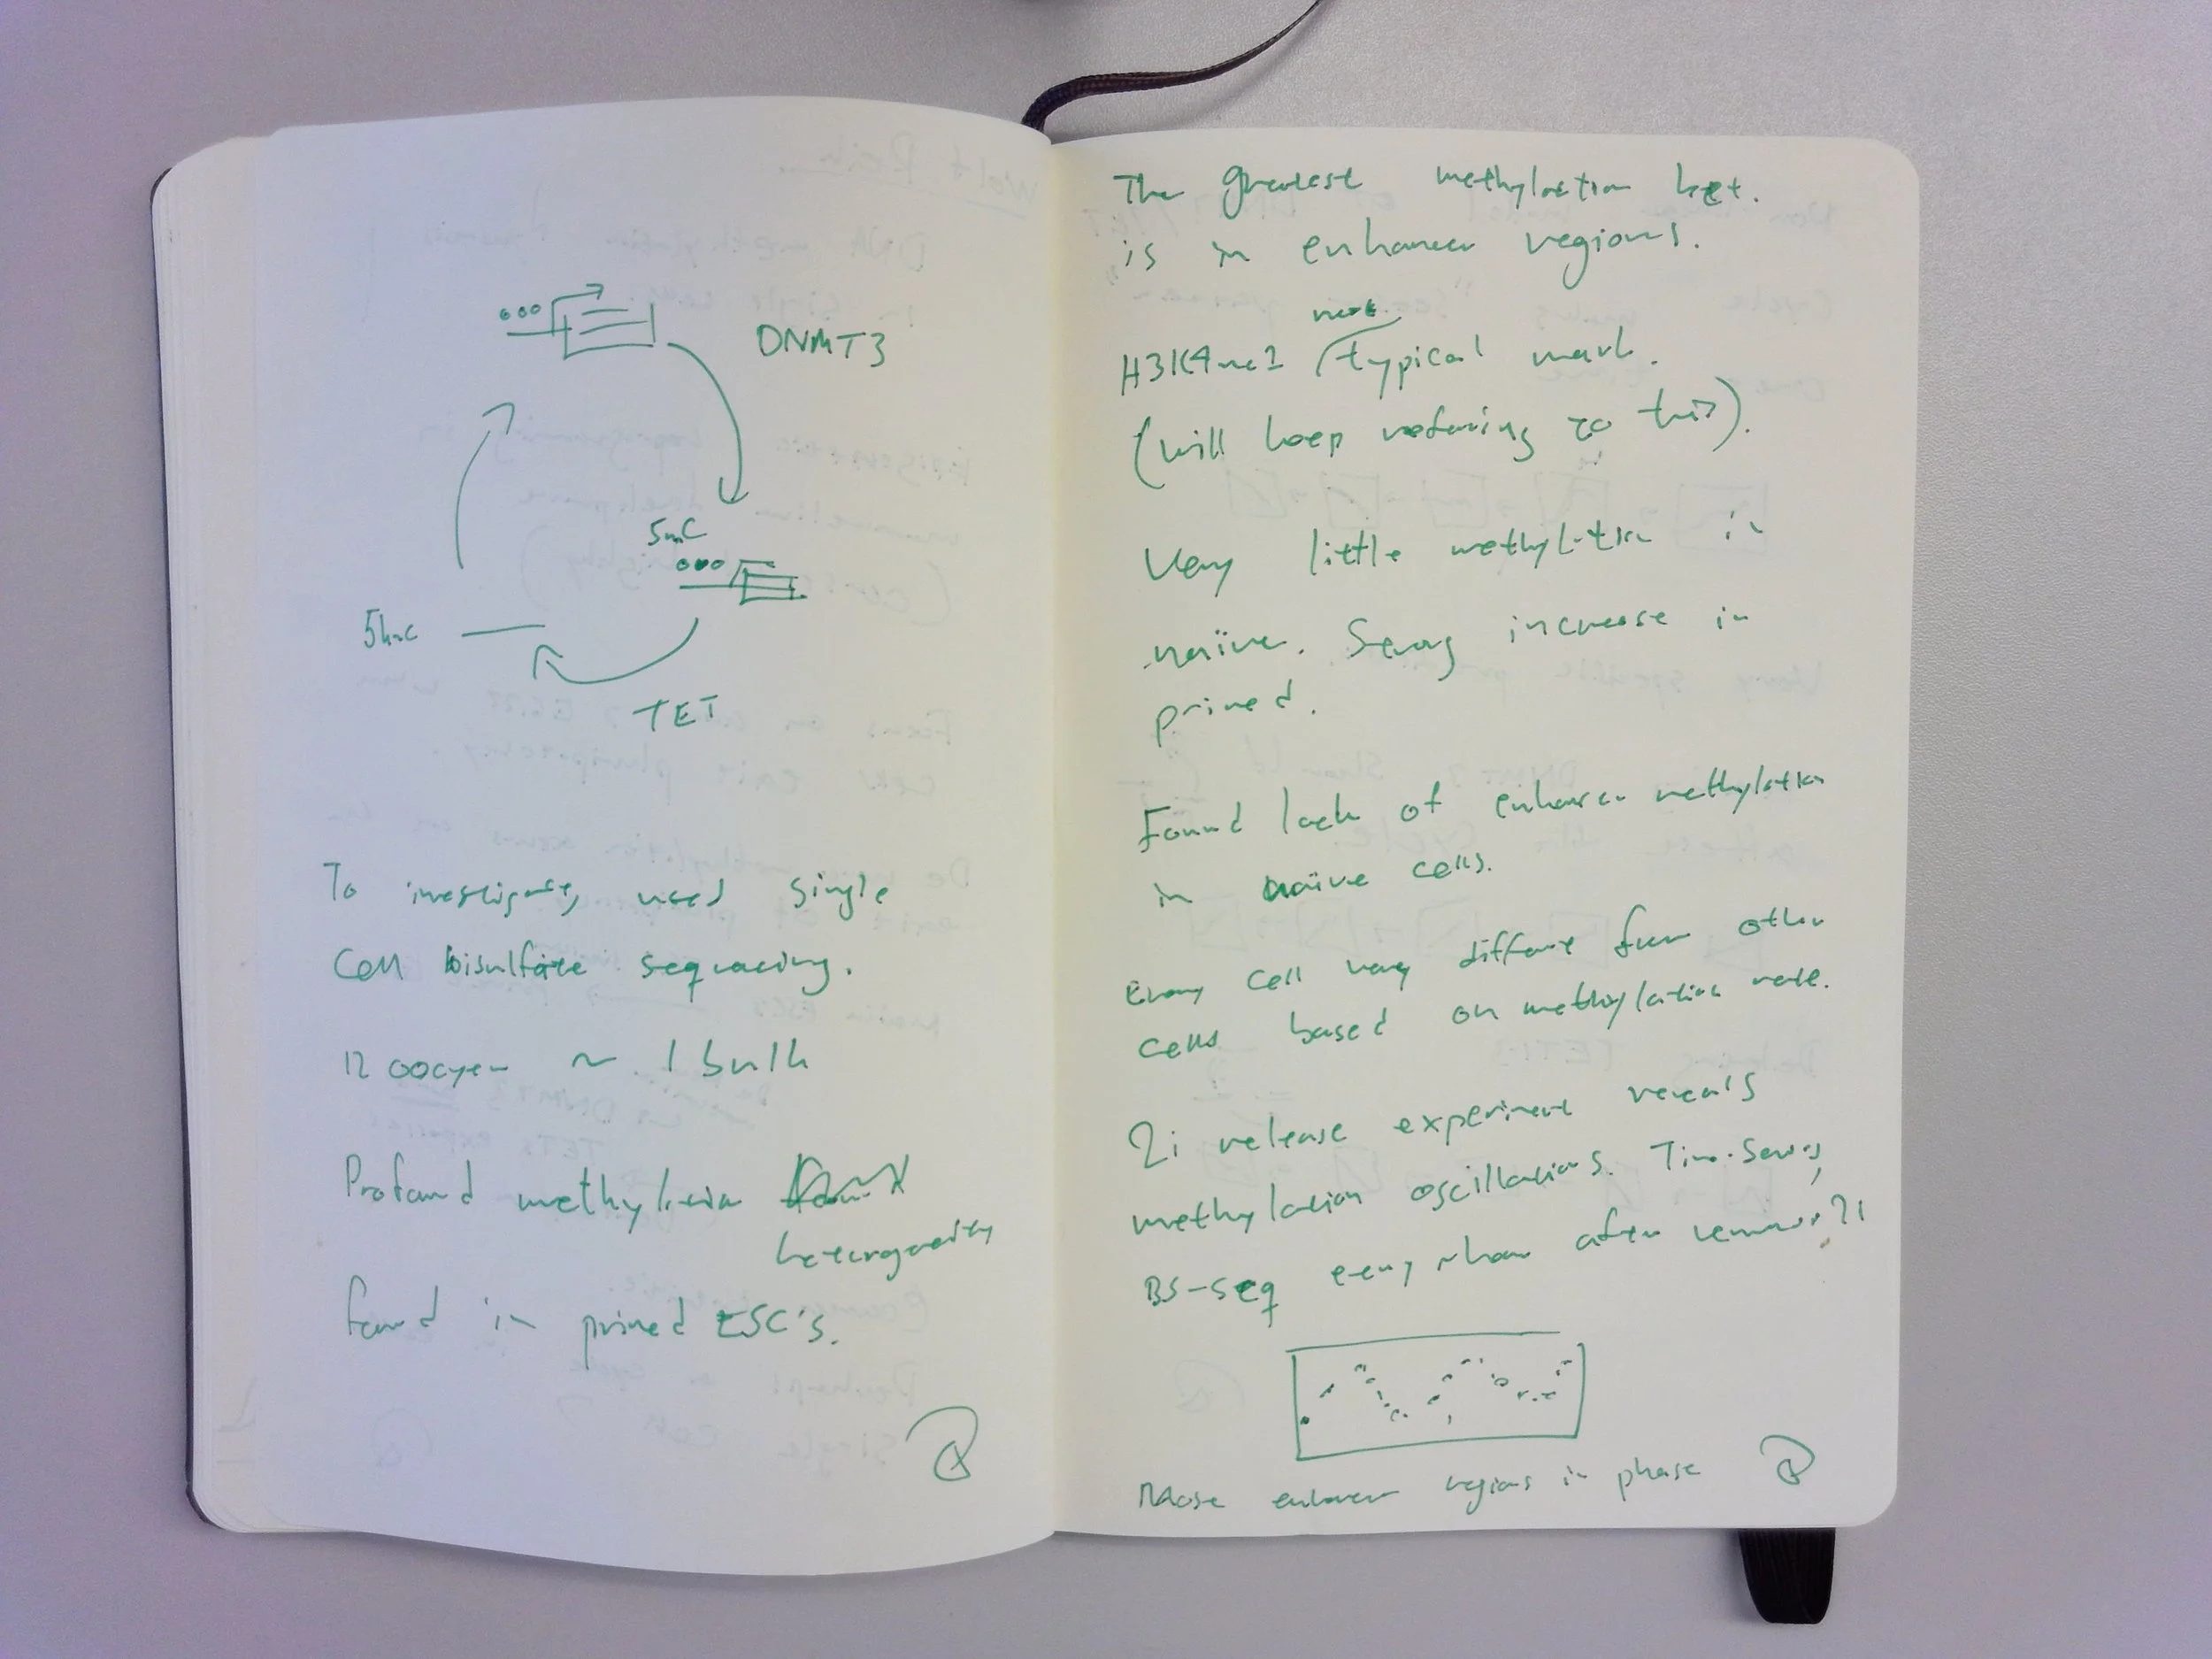 DNMT3
5mC
5hmC
TET
To investigate, used single
cell bisulfite sequencing.
12 oocytes ~ 1 bulk
Profound methylation
heterogeneity
found in primed ESC's.
The greatest methylation het.
is in enhancer regions.
most
H3K4me1 typical mark.
(will keep refering to this).
Very little methylation in
naïve. Strong increase in
primed.
Found lack of enhancer methylation
in naïve cells.
Every cell very different from other
cells based on methylation rate.
2i release experiment reveals
methylation oscillations. Time-series,
BS-seq every hour after removing 2i
Most enhancer regions in phase